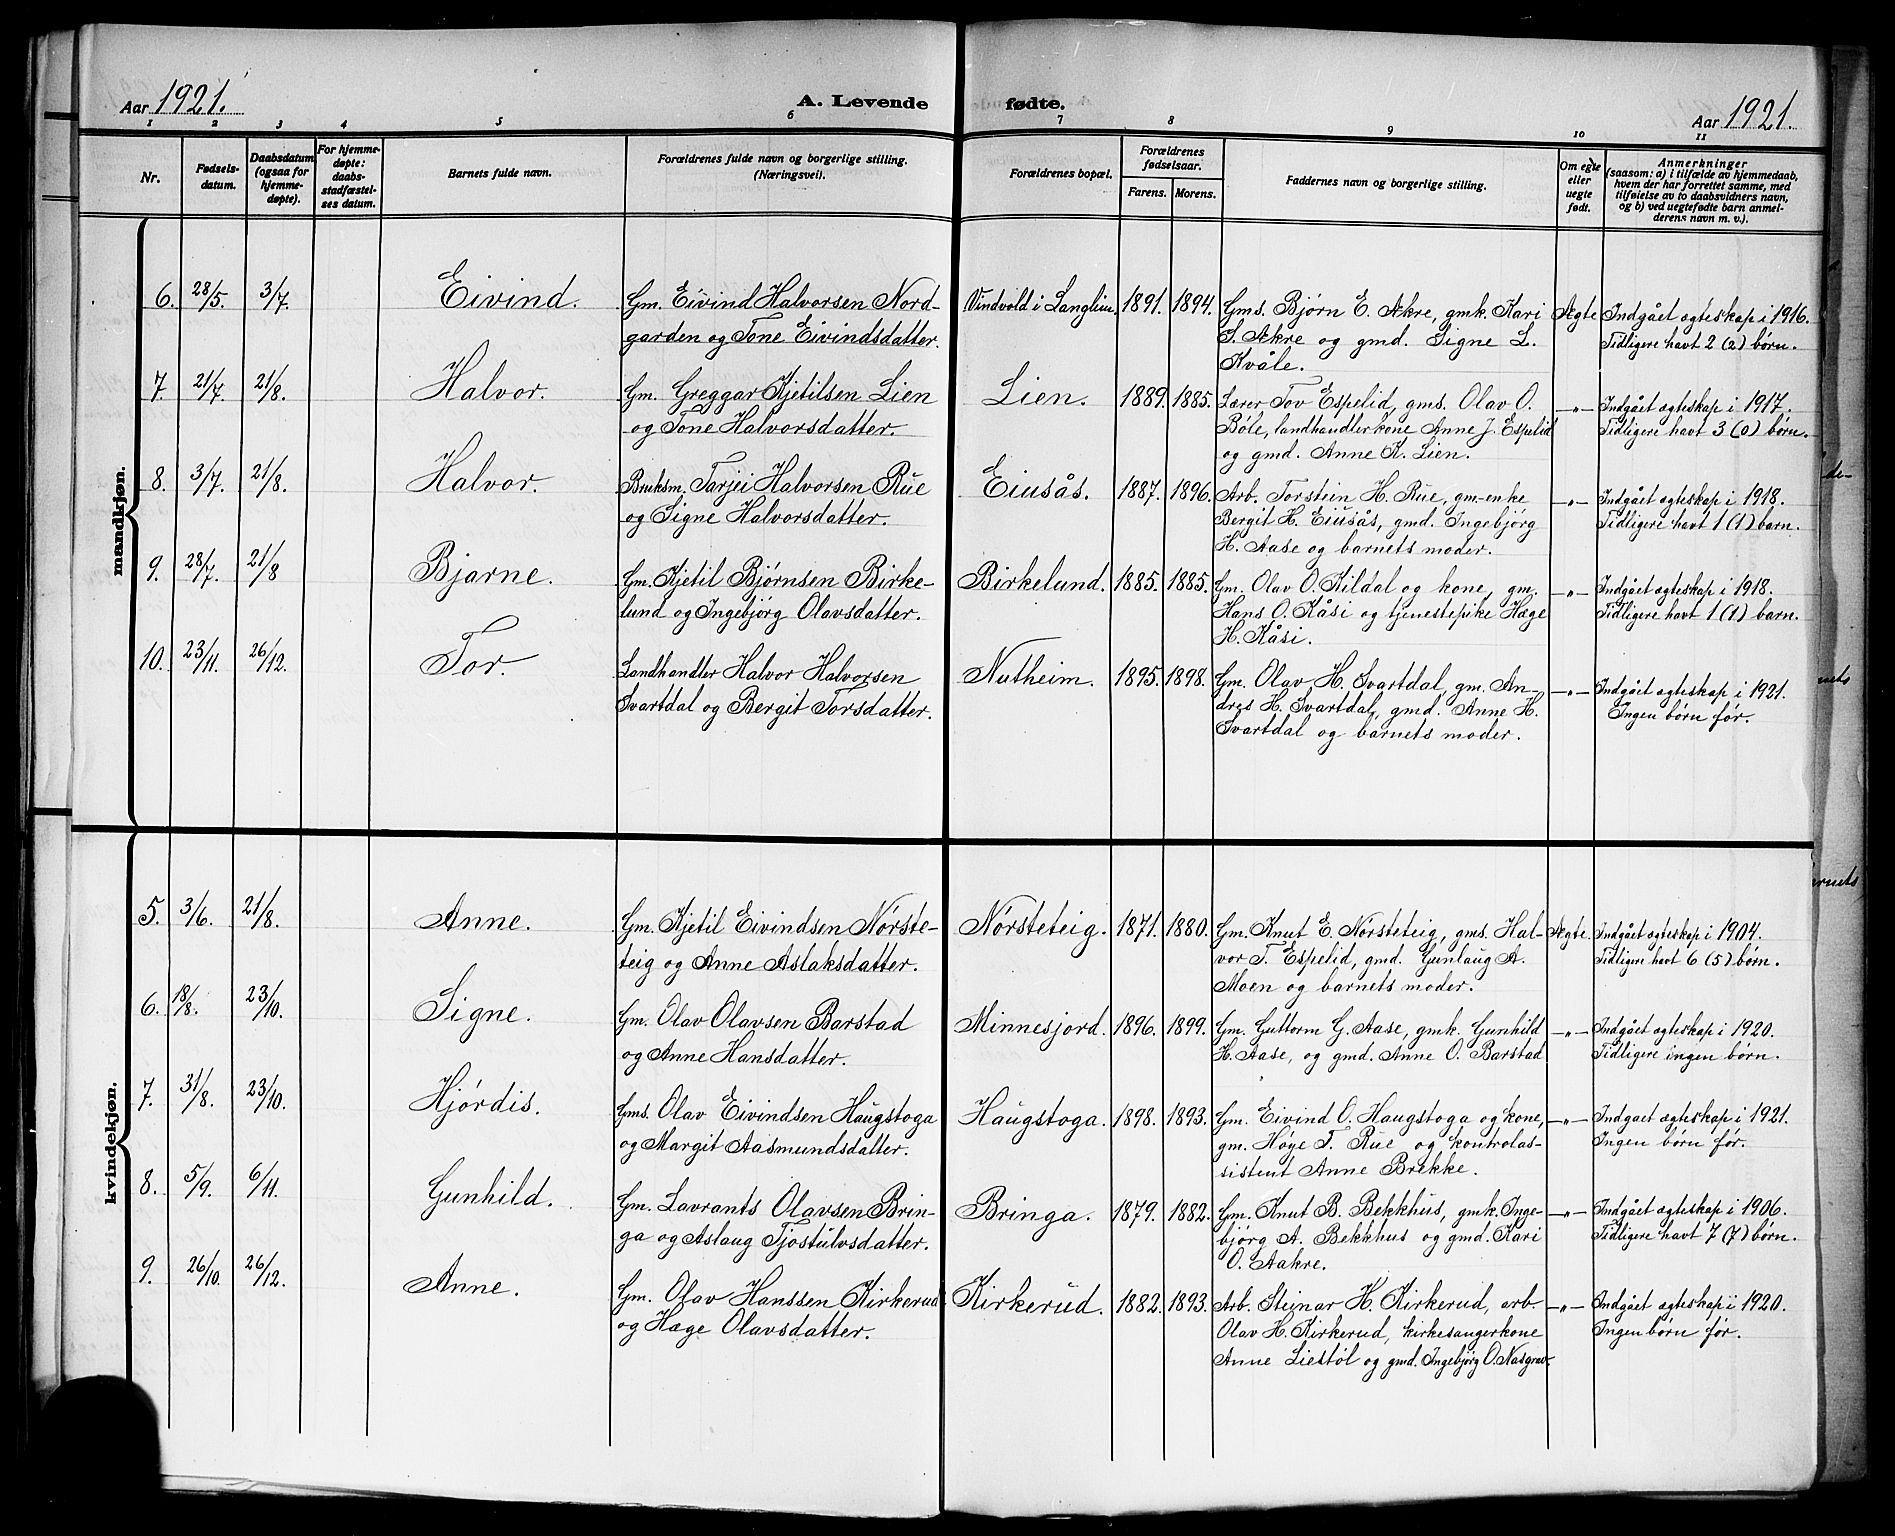 Aar 1921.
A. Levende
fødte.
Aar 1921.
1 2 3 4 5 6 7 8 9 10 11
Nr.
Fødsels-
datum.
Daabsdatum
(ogsaa for
hjemme-
døpte).
For hjemme-
døpte:
daabs-
stadfæstel-
ses datum.
Barnets fulde navn.
Forældrenes fulde navn og borgerlige stilling.
(Næringsvei).
Forældrenes bopæl.
Forældrenes
fødselsaar.
Farens. Morens.
Faddernes navn og borgerlige stilling.
Om egte
eller
uegte
født.
Anmerkninger
(saasom: a) i tilfælde av hjemmedaab,
hvem der har forrettet samme, med
tilføielse av to daabsvidners navn,
og b) ved uegtefødte barn anmel-
derens navn m. v.).
mandkjøn.
6. 28/5. 3/7. Eivind. Gm. Eivind Halvorsen Nord- Vindvold i Langlim. 1891. 1894. Gms. Bjørn E. Akre, gmk. Kari Ægte Indgået ægteskap i 1916.
garden og Tone Eivindsdatter. S. Akre og gmd. Signe L. Tidligere havt 2 (2) børn.
Kvåle.
7. 21/7. 21/8. Halvor. Gm. Greggar Kjetilsen Lien Lien. 1889. 1885. Lærer Tov Espelid, gms. Olav O. —"— Indgået ægteskap i 1917.
og Tone Halvorsdatter. Bøle, landhandlerkone Anne J. Espelid Tidligere havt 3 (0) børn.
og gmd. Anne K. Lien.
8. 3/7. 21/8. Halvor. Bruksm. Tarjei Halvorsen Rue Eiusås. 1887. 1896. Arb. Torstein H. Rue, gm-enke —"— Indgået ægteskap i 1918.
og Signe Halvorsdatter. Bergit H. Eiusås, gmd. Ingebjørg Tidligere havt 1 (1) barn.
H. Aase og barnets moder.
9. 28/7. 21/8 Bjarne. Gm. Kjetil Bjørnsen Birke- Birkelund. 1885. 1885. Gm. Olav O. Kildal og kone, gm. —"— Indgået ægteskap i 1918.
lund og Ingebjørg Olavsdatter. Hans O. Kåsi og tjenestepike Hæge Tidligere havt 1 (1) barn.
H. Kåsi.
10. 23/11. 26/12. Tor. Landhandler Halvor Halvorsen Nutheim. 1895. 1898. Gm. Olav H. Svartdal, gm. An- —"— Indgået ægteskap i 1921.
Svartdal og Bergit Torsdatter. dres H. Svartdal, gmd. Anne H. Ingen børn før.
Svartdal og barnets moder.
kvindekjøn.
5. 3/6. 21/8. Anne. Gm. Kjetil Eivindsen Nørste- Nørsteteig. 1871. 1880. Gm. Knut E. Nørsteteig, gms. Hal- Ægte. Indgået ægteskap i 1904.
teig og Anne Aslaksdatter. vor T. Espelid, gmd. Gunlaug A. Tidligere havt 6 (5) børn.
Moen og barnets moder.
6. 18/8. 23/10. Signe. Gm. Olav Olavsen Barstad Minnesjord. 1896. 1899. Gm. Guttorm G. Aase, gmk. Gunhild —"— Indgået ægteskap i 1920.
og Anne Hansdatter. H. Aase, og gmd. Anne O. Barstad Tidligere ingen børn.
7. 31/8. 23/10. Hjørdis. Gms. Olav Eivindsen Haugstoga Haugstoga. 1898. 1893. Gm. Eivind O. Haugstoga og kone, —"— Indgaet ægteskap i 1921.
og Margit Aasmundsdatter. gm. Høge T. Rue og kontrolas- Ingen børn før.
sistent Anne Brekke.
8. 5/9. 6/11. Gunhild. Gm. Lavrants Olavsen Brin- Bringa. 1879. 1882. Gm. Knut B. Bekkhus, gmk. Inge- —"— Indgået ægteskap i 1906.
ga og Aslaug Tjostulvsdatter. bjørg A. Bekkhus og gmd. Kari Tidligere havt 7 (7) børn.
O. Aakre.
9. 26/10. 26/12. Anne. Gm. Olav Hanssen Kirkerud Kirkerud. 1882. 1893. Arb. Steinar H. Kirkerud, arb. —"— Indgået ægteskap i 1920.
og Hæge Olavsdatter. Olav H. Kirkerud, kirkesangerkone Ingen børn før.
Anne Liestøl og gmd. Ingebjørg O. Nasgrav.